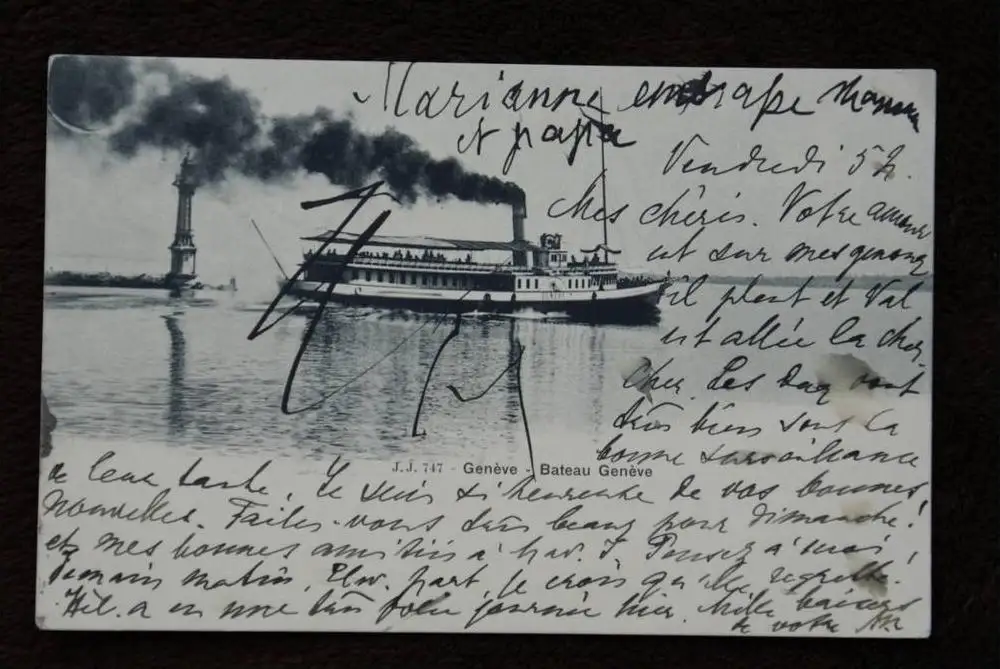 Marianne embrasse maman
et papa
Vendredi 5 h.
Mes chéris. Votre amour
est sur mes genoux
il pleut et Val
est allée la cher
cher. Les deux vont
très bien sous la
bonne surveillance
de leur tante. Je suis si heureuse de vos bonnes
nouvelles. Faites-vous très beaux pour dimanche!
et mes bonnes amitiés à J. Pensez à moi
demain matin. part, je crois qu'elle regrette.
Hél. a eu une très jolie journée hier. Mille baisers
de votre
J.J. 747 - Genève - Bateau Genève